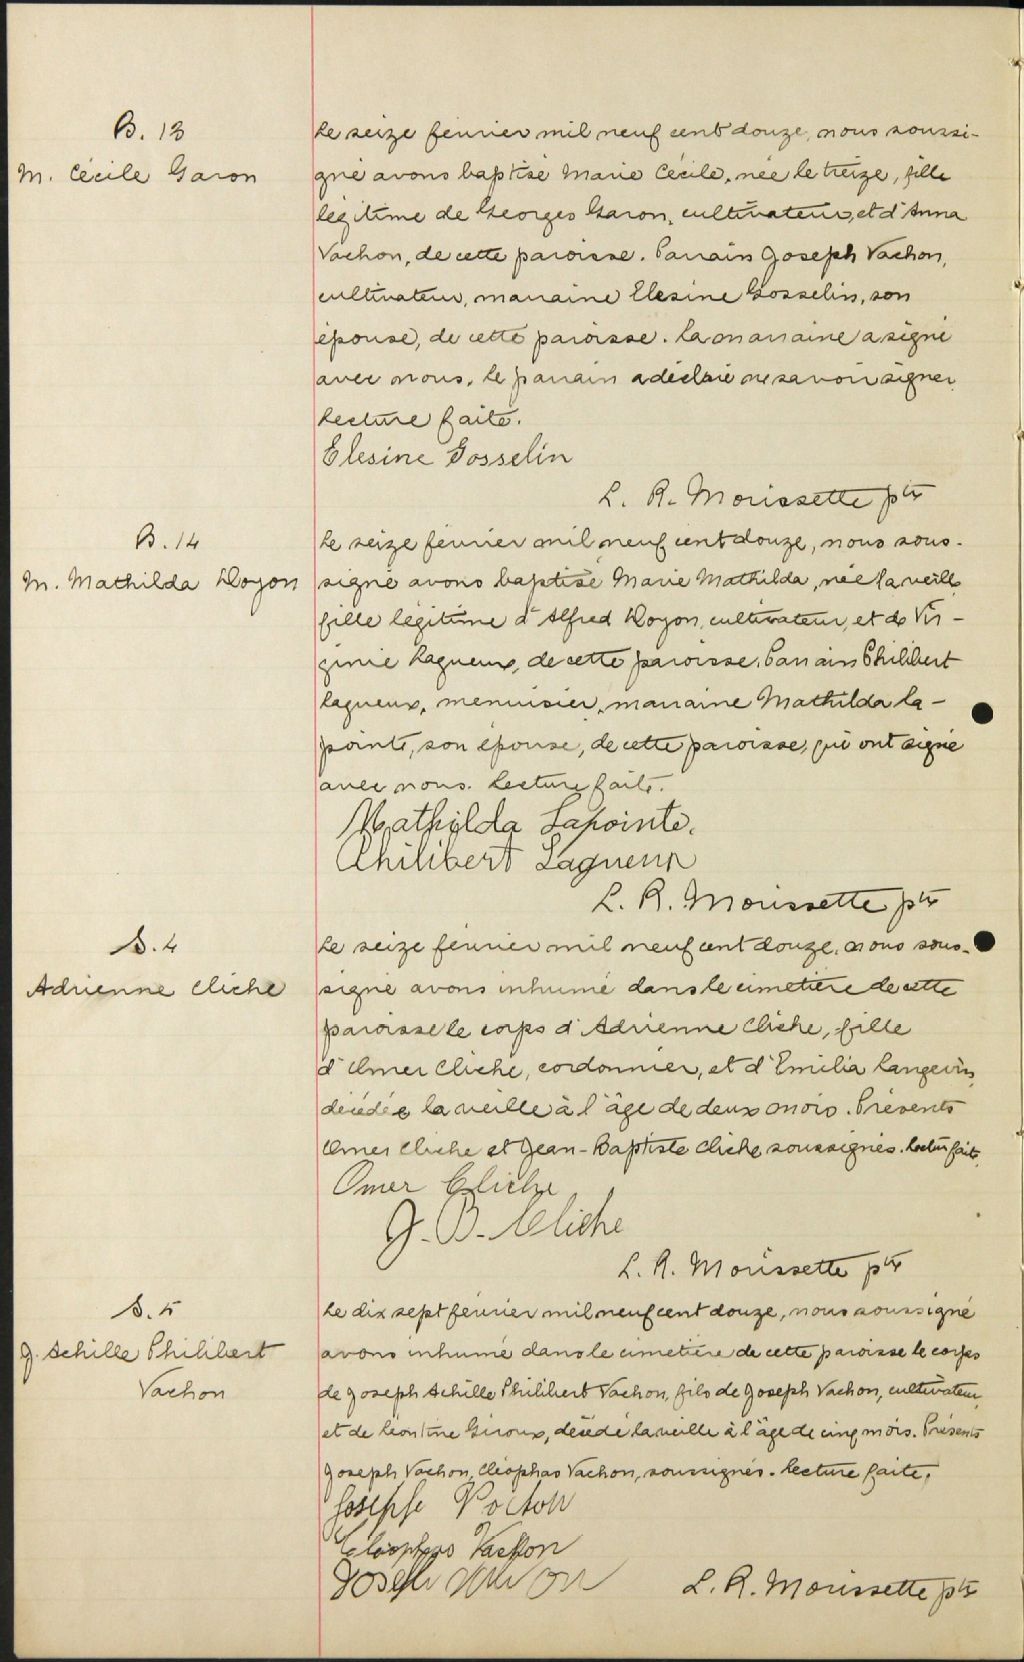 B. 13
M. Cécile Garon
Le seize février mil neuf cent douze, nous soussi-
gné avons baptisé Marie Cécile, née le treize, fille
légitime de Georges Garon, cultivateur, et d'Anna
Vachon, de cette paroisse. Parrain Joseph Vachon,
cultivateur, marraine Elesine Gosselin, son
épouse, de cette paroisse. La marraine a signé
avec nous. Le parrain a déclaré ne savoir signer.
Lecture faite.
Elesine Gosselin
L. R. Morissette ptre
B. 14
M. Mathilda Doyon
Le seize février mil neuf cent douze, nous sous-
signé avons baptisé Marie Mathilda, née la veille,
fille légitime d'Alfred Doyon, cultivateur, et de Vir-
ginie Lagueux, de cette paroisse. Parrain Philibert
Lagueux, menuisier, marraine Mathilda La-
pointe, son épouse, de cette paroisse, qui ont signé
avec nous. Lecture faite.
Mathilda Lapointe.
Philibert Lagueux
L. R. Morissette ptre
S. 4
Adrienne Cliche
Le seize février mil neuf cent douze, nous sous-
signé avons inhumé dans le cimetière de cette
paroisse le corps d'Adrienne Cliche, fille
d'Omer Cliche, cordonnier, et d'Emilia Langevin,
décédée la veille à l'âge de deux mois. Présents
Omer Cliche et Jean-Baptiste Cliche soussignés. Lecture faite.
Omer Cliche
J. B. Cliche
L. R. Morissette ptre
S. 5
J. Achille Philibert
Vachon
Le dix sept février mil neuf cent douze, nous soussigné
avons inhumé dans le cimetière de cette paroisse le corps
de Joseph Achille Philibert Vachon, fils de Joseph Vachon, cultivateur,
et de Léontine Giroux, décédé la veille à l'âge de cinq mois. Présents
Joseph Vachon, Cléophas Vachon, soussignés. Lecture faite.
Joseph Vachon
Cléophas Vachon
Joseph Vachon
L. R. Morissette ptre